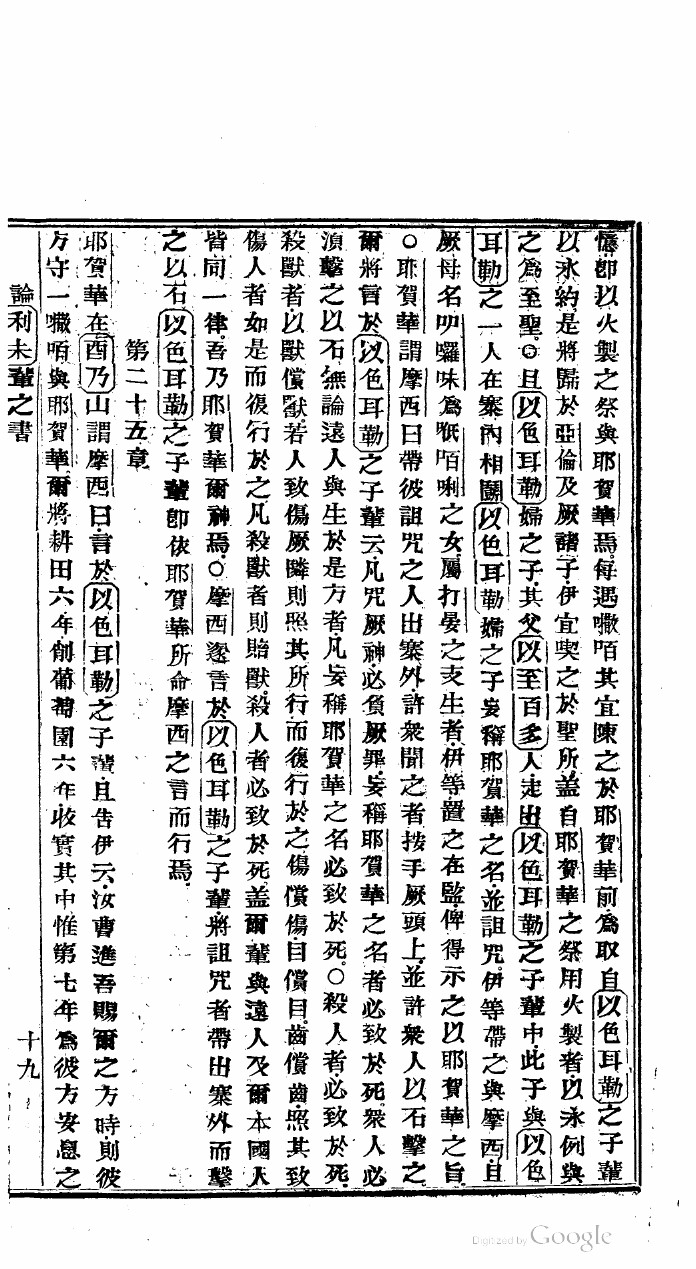 憶卽以火製之祭與耶賀華焉每遇嚫咟其宜陳之於耶賀華前為取自以色耳勒之子輩
以永約是將歸於亞倫及厥諸子伊宜喫之於聖所蓋自耶賀華之祭用火製者以永例與
之為至聖○且以色耳勒婦之子其父以至百多人走出以色耳勒之子輩中此子與以色
耳勒之一人在寨內相鬭以色耳勒婦之子妄稱耶賀華之名並詛咒伊等帶之與摩西且
厥母名叩囉味為𠵽咟唎之女屬打晏之支生者伊等置之在監俾得示之以耶賀華之旨
○耶賀華謂摩西曰帶彼詛咒之人出寨外許衆聞之者按手厥頭上並許衆人以石擊之
爾將言於以色耳勒之子輩云凡咒厥神必負厥罪妄稱耶賀華之名者必致於死衆人必
湏擊之以石無論遠人與生於是方者凡妄稱耶賀華之名必致於死○殺人者必致於死
殺獸者以獸償獸若人致傷厥鄰則照其所行而復行於之傷償傷目償目齒償齒照其致
傷人者如是而復行於之凡殺獸者則賠獸殺人者必致於死蓋爾輩與遠人及爾本國人
皆同一律吾乃耶賀華爾神焉○摩西遂言於以色耳勒之子輩將詛咒者帶出寨外而擊
之以石以色耳勒之子輩卽依耶賀華所命摩西之言而行焉
第二十五章
耶賀華在西乃山謂摩西曰言於以色耳勒之子輩且告伊云汝曹進吾賜爾之方時則彼
方守一嚫咟與耶賀華爾將耕田六年削葡萄園六年收實其中惟第七年為彼方安息之
論利未輩之書 十九
Digitized by Google